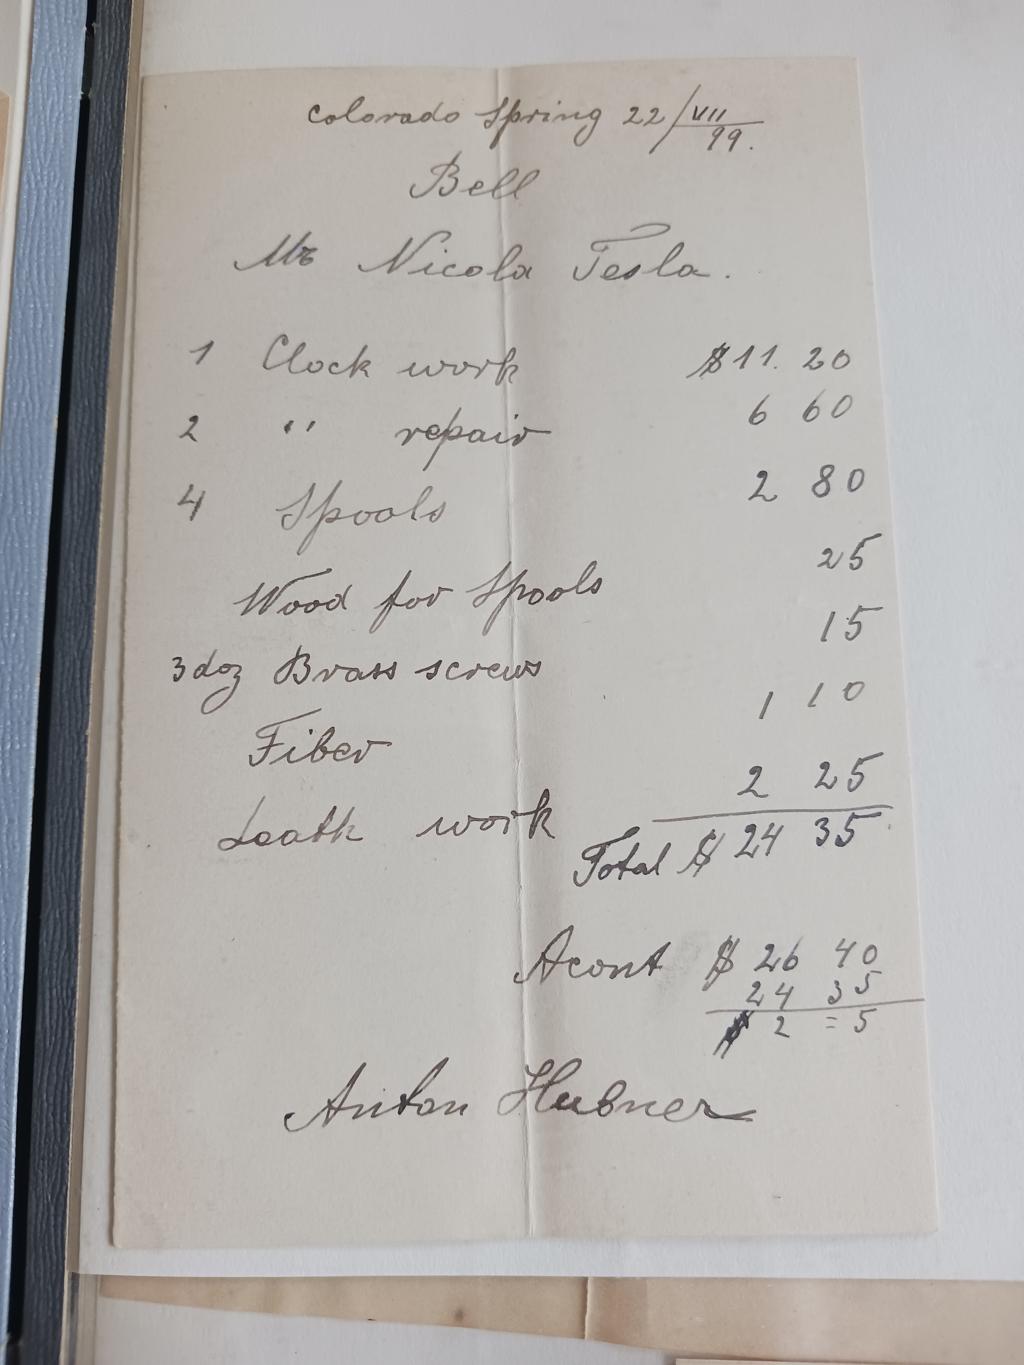 Colorado Spring 22/VII 99.
Bell
Mr Nicola Tesla.
1 Clock work $11. 20
2 " repair 6 60
4 Spools 2 80
Wood for Spools 25
3 doz Brass screws 15
Fiber 1 10
Leath work 2 25
Total $ 24 35
Acont $ 26 40
24 35
$ 2 = 5
Anton Hubner